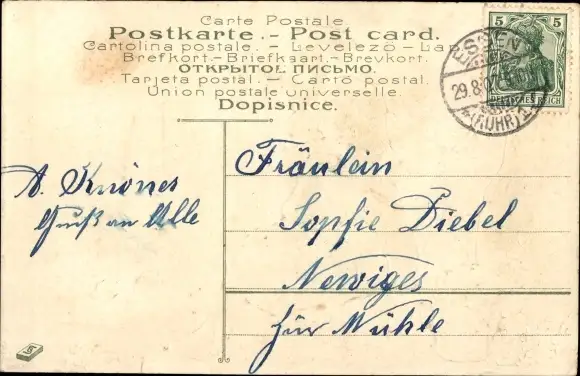 Carte Postale.
Postkarte.-Post card.
Cartolina postale.-Levelezö-La
Brefkort.-Briefkaart.-Brevkort.
ОТКРЫТОЕ ПИСЬМО.
Tarjeta postal.-Cartõ postal.
Union postale universelle.
Dopisnice.
5 5
ESSEN
29.8.07
DEUTSCHES REICH
(RUHR)
Fräulein
Sopfie Diebel
Neviges
für Mühle
Gruß an Alle